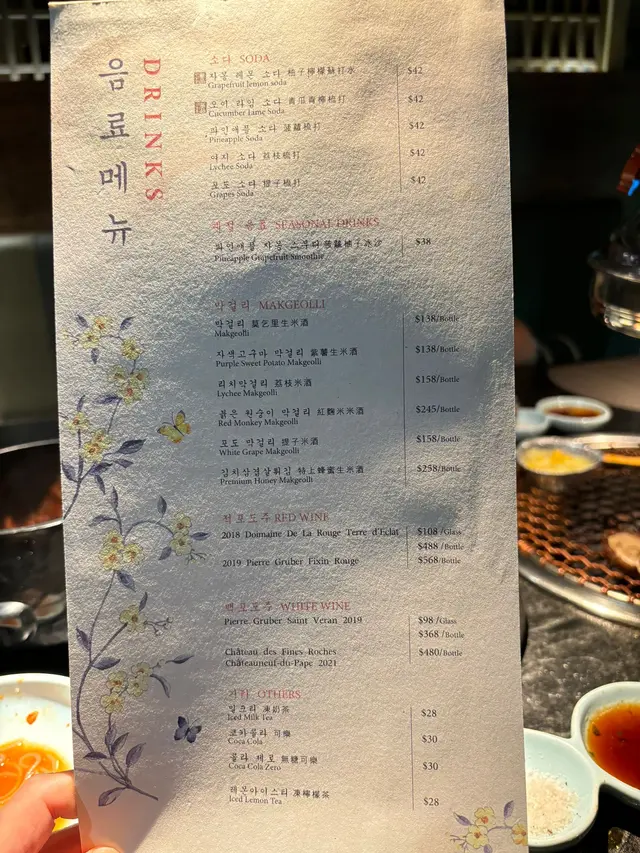 음료메뉴
DRINKS
소다 SODA
자몽 레몬 소다 柚子檸檬蘇打水 $42
Grapefruit lemon soda
오이 라임 소다 青瓜青檸梳打 $42
Cucumber Lame Soda
파인애플 소다 菠蘿梳打 $42
Pineapple Soda
여지 소다 荔枝梳打 $42
Lychee Soda
포도 소다 提子梳打 $42
Grapes Soda
계절 음료 SEASONAL DRINKS
파인애플 자몽 스무디 菠蘿柚子冰沙 $38
Pineapple Grapefruit Smoothie
막걸리 MAKGEOLLI
막걸리 莫乞里生米酒 $138/Bottle
Makgeolli
자색고구마 막걸리 紫薯生米酒 $138/Bottle
Purple Sweet Potato Makgeolli
리치막걸리 荔枝米酒 $158/Bottle
Lychee Makgeolli
붉은 원숭이 막걸리 紅麴米米酒 $245/Bottle
Red Monkey Makgeolli
포도 막걸리 提子米酒 $158/Bottle
White Grape Makgeolli
김치삼겹살튀김 特上蜂蜜生米酒 $258/Bottle
Premium Honey Makgeolli
적포도주 RED WINE
2018 Domaine De La Rouge Terre d'Eclat $108 /Glass
$488 /Bottle
2019 Pierre Gruber Fixin Rouge $568/Bottle
백포도주 WHITE WINE
Pierre Gruber Saint Veran 2019 $98 /Glass
$368 /Bottle
Château des Fines Roches $480/Bottle
Châteauneuf-du-Pape 2021
기타 OTHERS
밀크티 凍奶茶 $28
Iced Milk Tea
코카콜라 可樂 $30
Coca Cola
콜라 제로 無糖可樂 $30
Coca Cola Zero
레몬아이스티 凍檸檬茶 $28
Iced Lemon Tea